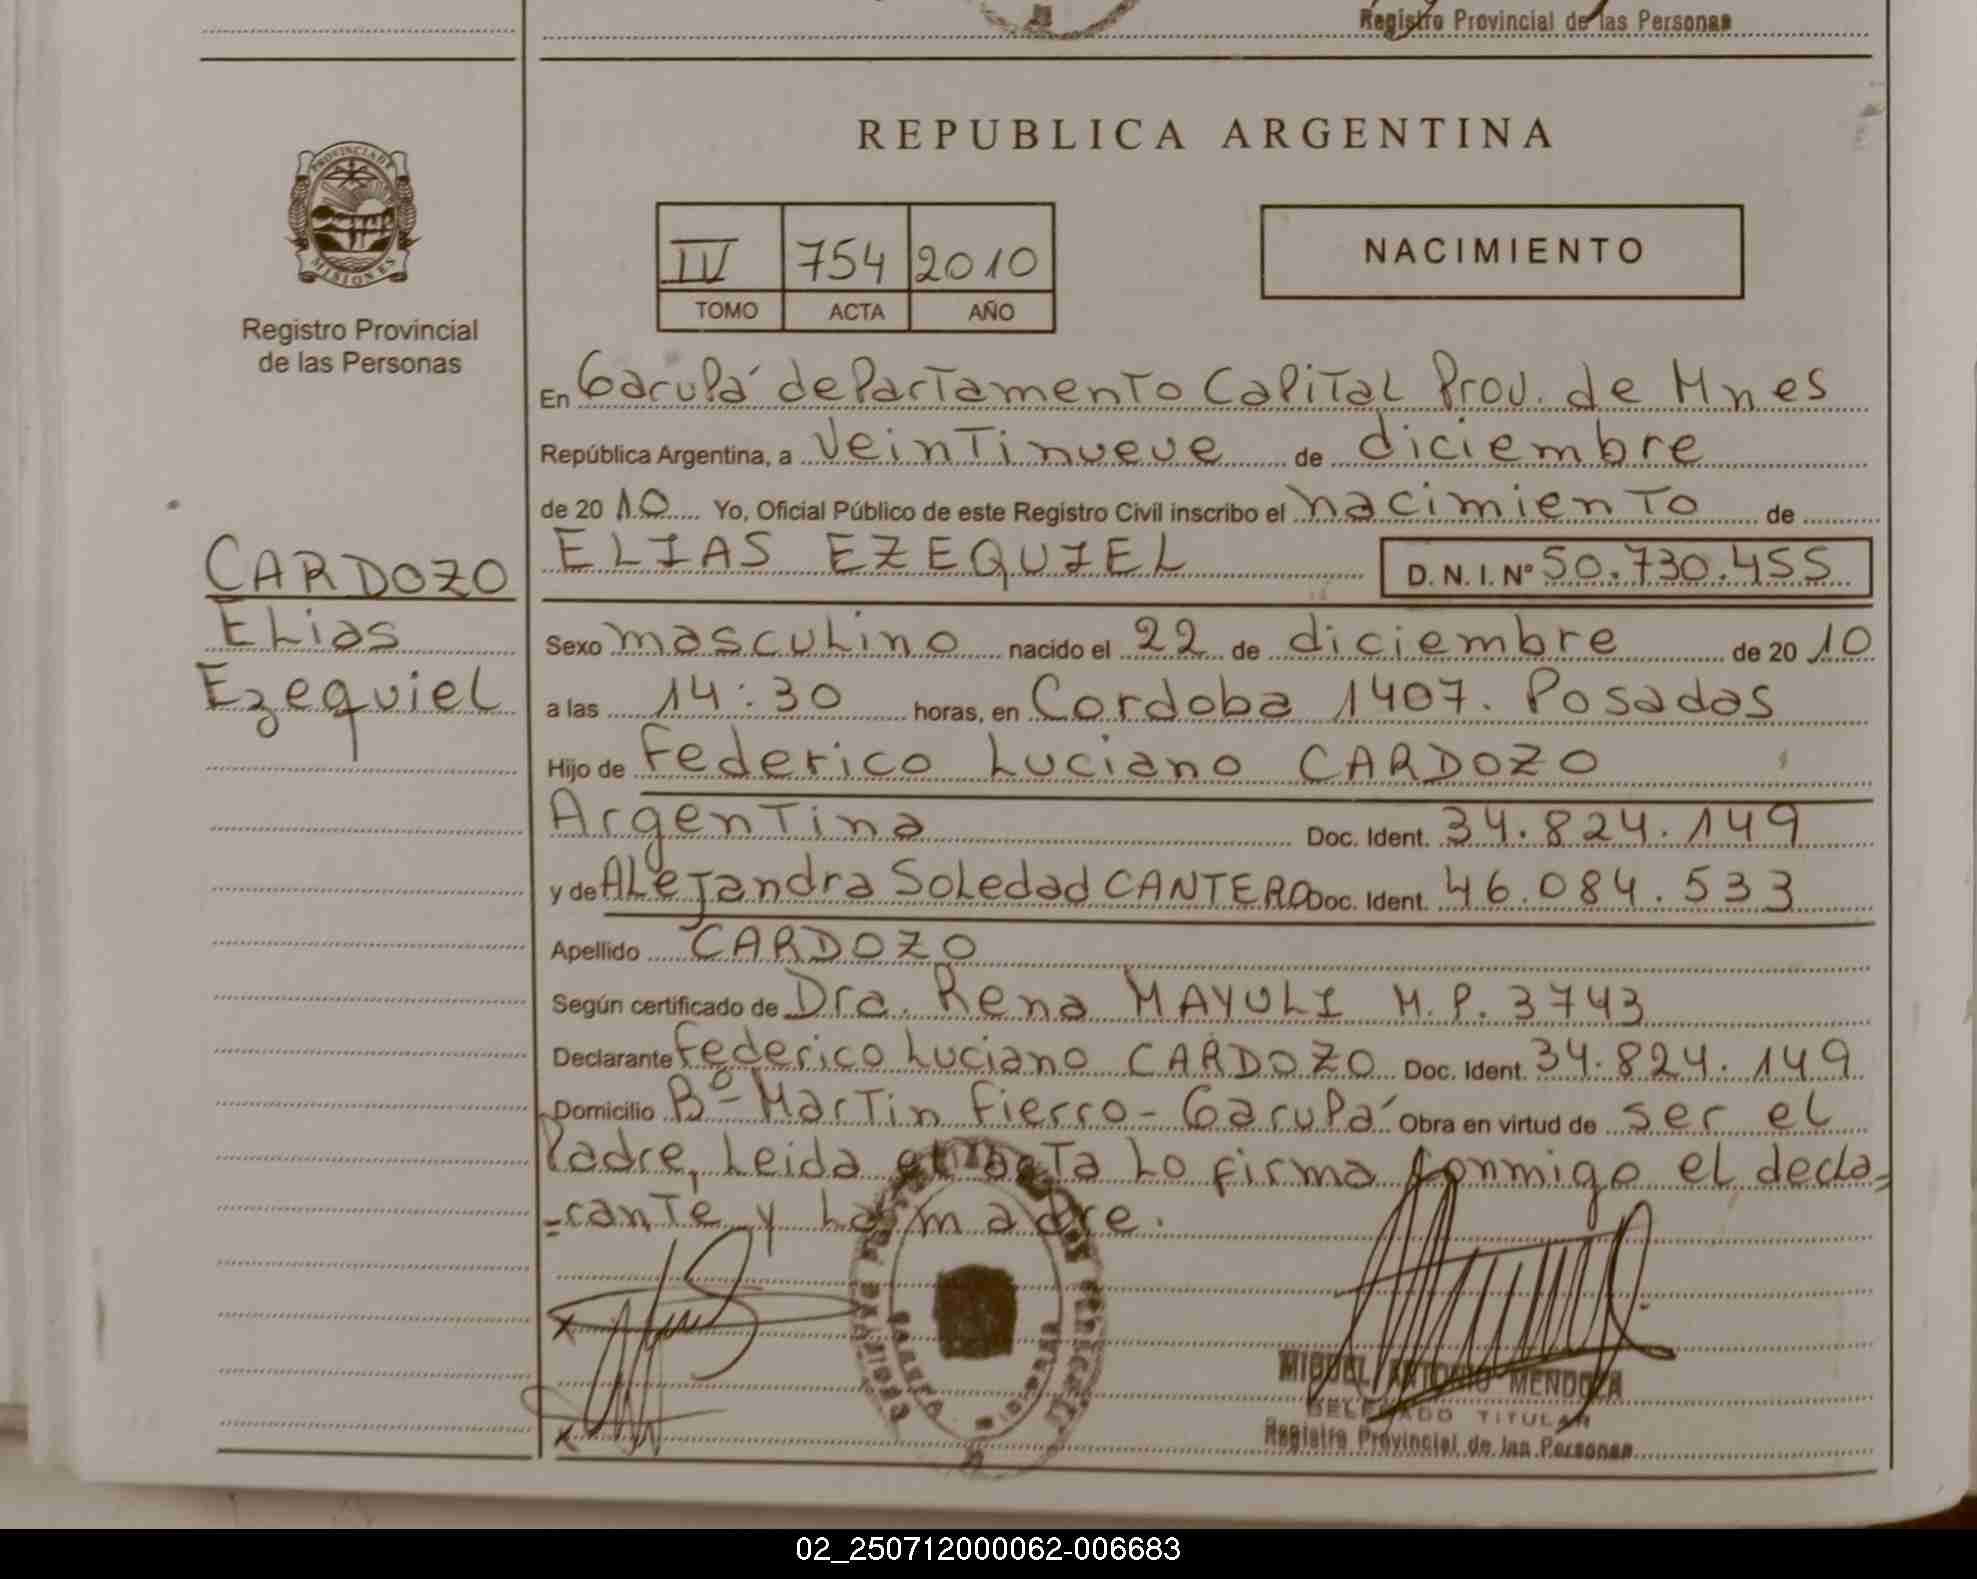 Registro Provincial de las Personas
PROVINCIA DE
MISIONES
Registro Provincial
de las Personas
CARDOZO
Elias
Ezequiel
REPUBLICA ARGENTINA
IV 754 2010
TOMO ACTA AÑO
NACIMIENTO
En Garupá departamento Capital Prov. de Mnes
República Argentina, a veintinueve de diciembre
de 2010 Yo, Oficial Público de este Registro Civil inscribo el nacimiento de
ELIAS EZEQUIEL D. N. I. Nº 50.730.455
Sexo masculino nacido el 22 de diciembre de 2010
a las 14:30 horas, en Cordoba 1407. Posadas
Hijo de Federico Luciano CARDOZO
Argentina Doc. Ident. 34.824.149
y de Alejandra Soledad CANTERO Doc. Ident. 46.084.533
Apellido CARDOZO
Según certificado de Dra. Rena MAYULI M.P. 3743
Declarante Federico Luciano CARDOZO Doc. Ident. 34.824.149
Domicilio Bº- Martin Fierro - Garupá Obra en virtud de ser el
Padre, Leida el acta Lo firma conmigo el decla-
=rante y la madre.
MIGUEL ANTONIO MENDOZA
DELEGADO TITULAR
Registro Provincial de las Personas
02_250712000062-006683